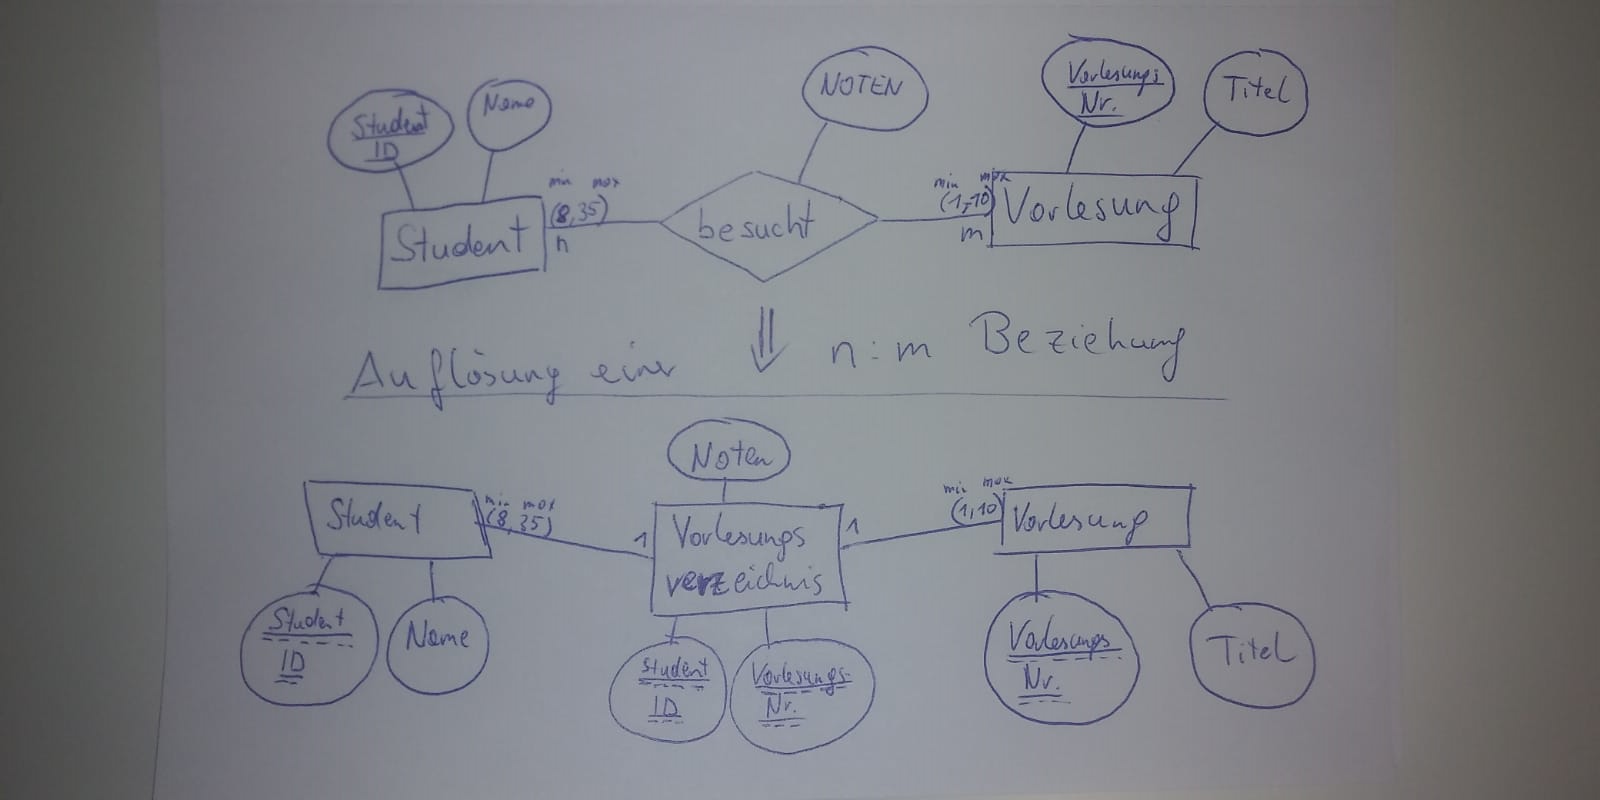 Student
ID
Name
NOTEN
Vorlesungs
Nr.
Titel
min max
(8,35)
n
Student
besucht
min max
(1,10)
m
Vorlesung
Auflösung einer n:m Beziehung
Noten
Student
min max
(8,35)
1
Vorlesungs
verzeichnis
1
min max
(1,10)
Vorlesung
Student
ID
Name
Student
ID
Vorlesungs-
Nr.
Vorlesungs
Nr.
Titel